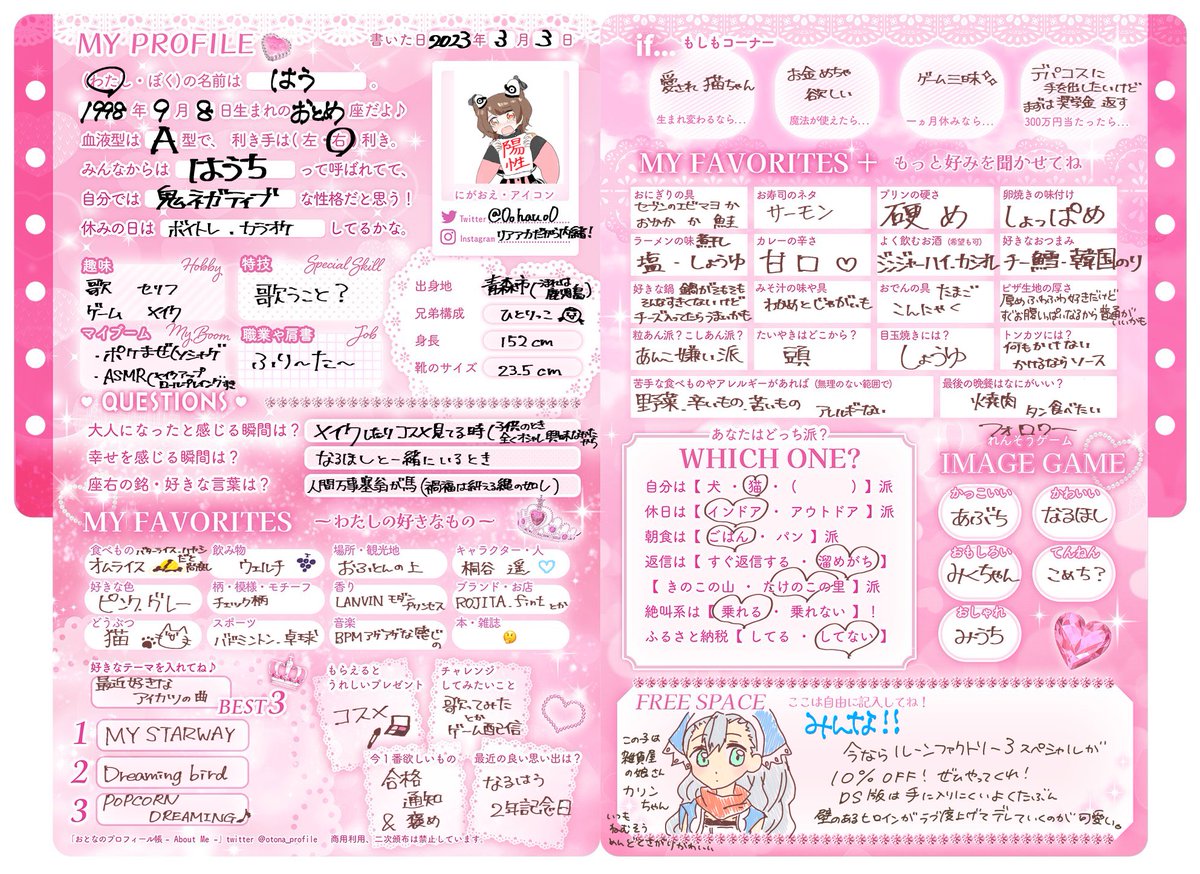 MY PROFILE
書いた日 2023年 3月 3日
(わたし・ぼく)の名前は はう 。
1998年 9月 8日生まれの おとめ 座だよ♪
血液型は A 型で、 利き手は(左・右)利き。
みんなからは はうち って呼ばれてて、
自分では 鬼ネガティブ な性格だと思う!
休みの日は ボイトレ、カラオケ してるかな。
陽性
にがおえ・アイコン
Twitter
Instagram リアアカだから内緒!
趣味 Hobby
歌 セリフ
ゲーム メイク
特技 Special Skill
歌うこと?
マイブーム My Boom
・ASMR
職業や肩書 Job
ふり〜た〜
出身地 青森市
兄弟構成 ひとりっこ
身長 152cm
靴のサイズ 23.5cm
QUESTIONS
大人になったと感じる瞬間は? メイクしたりコスメ見てる時
幸せを感じる瞬間は? なるほしと一緒にいるとき
座右の銘・好きな言葉は? 人間万事塞翁が馬(禍福は糾える縄の如し)
MY FAVORITES 〜わたしの好きなもの〜
食べもの オムライス
飲み物 ウェルチ
場所・観光地 おふとんの上
キャラクター・人 桐谷 遥
好きな色 ピンク グレー
柄・模様・モチーフ チェック柄
香り LANVIN モダンプリンセス
ブランド・お店 ROJITA. fint とか
どうぶつ 猫
スポーツ バドミントン、卓球
音楽 BPMアゲアゲな感じの
本・雑誌
好きなテーマを入れてね♪
最近好きな
アイカツの曲
BEST3
1 MY STARWAY
2 Dreaming bird
3 POPCORN
DREAMING♪
もらえると
うれしいプレゼント
コスメ
チャレンジ
してみたいこと
歌ってみた
とか
ゲーム配信
今1番欲しいもの
合格
通知
& 褒め
最近の良い思い出は?
なるはう
2年記念日
「おとなのプロフィール帳 - About Me -」twitter @otona_profile 商用利用、二次頒布は禁止しています。
if... もしもコーナー
愛され猫ちゃん
生まれ変わるなら...
お金めちゃ
欲しい
魔法が使えたら...
ゲーム三昧
一ヵ月休みなら...
デパコスに
手を出したいけど
まずは奨学金 返す
300万円当たったら...
MY FAVORITES + もっと好みを聞かせてね
おにぎりの具
セブンのエビマヨか
おかか か 鮭
お寿司のネタ
サーモン
プリンの硬さ
硬め
卵焼きの味付け
しょっぱめ
ラーメンの味
塩・しょうゆ
カレーの辛さ
甘口♡
よく飲むお酒 (希望も可)
ジンジャーハイ、カシオレ
好きなおつまみ
チー鱈・韓国のり
好きな鍋
みそ汁の味や具
わかめとじゃがいも
おでんの具
たまご
こんにゃく
ピザ生地の厚さ
粒あん派?こしあん派?
あんこ嫌い派
たいやきはどこから?
頭
目玉焼きには?
しょうゆ
トンカツには?
何もかけない
かけるならソース
苦手な食べものやアレルギーがあれば (無理のない範囲で)
野菜、辛いもの、苦いもの アレルギーない
最後の晩餐はなにがいい?
焼肉 タン食べたい
あなたはどっち派?
WHICH ONE?
自分は【 犬 ・ 猫 ・ ( ) 】派
休日は【 インドア ・ アウトドア 】派
朝食は【 ごはん ・ パン 】派
返信は【 すぐ返信する ・ 溜めがち 】
【 きのこの山 ・ たけのこの里 】派
絶叫系は【 乗れる ・ 乗れない 】!
ふるさと納税【 してる ・ してない 】
フォロワー
れんそうゲーム
IMAGE GAME
かっこいい あぶち
かわいい なるほし
おもしろい みくちゃん
てんねん こめち?
おしゃれ みうち
FREE SPACE ここは自由に記入してね!
みんな!!
この子は
雑貨屋
の娘さん
カリン
ちゃん
いつも
ねむそう
めんどくさがりかわいい
今ならルーンファクトリー3スペシャルが
10% OFF! ぜひやってくれ!
DS版は手に入りにくいよくたぶん
壁のあるヒロインがラブ度上げてデレしていくのが可愛い。